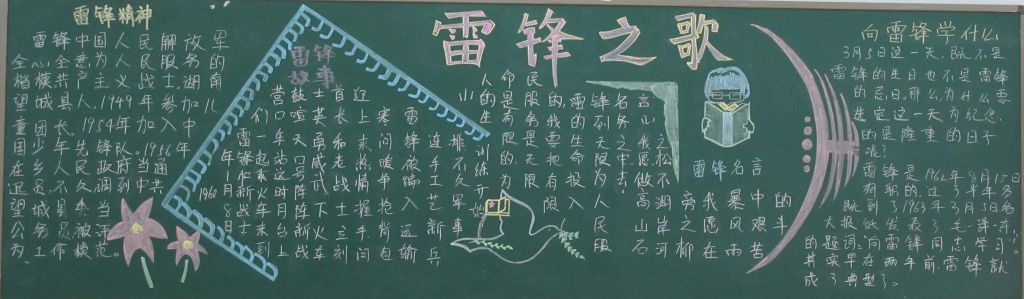 雷锋精神
雷锋中国人民解放军
全心全意为人民服务的
楷模共产主义战士，湖南
望城县人，1949年参加儿
童团长。1954年加入中
国少年先锋队。1956年
在乡人民政府当通
迟员，不久调到中共
望城县委当
公务员，被评
为工作模范。
雷锋之歌
雷锋故事
1960
年1月8日
雷锋和新战士
们一起乘火车来到
营口车站，这时月台上
鼓喧天，号阵阵，新战
士英勇威武下火车
首长和走战士立刻
迎上来热情握手问
寒问暖，抢背包
雷锋被编入运输
连手工艺新兵
排，不久军事
训练开始
人的生
命是有限的，为
民服务是无限
的，我要把有限
的生命投入
到无限为人民
服务之中去
雷锋名言
我愿做高山岩石
之松，不做湖岸河
旁之柳，我愿在
暴风雨中艰苦的斗
向雷锋学什么
3月5日这一天，既不是
雷锋的生日也不是雷锋
的忌日，那么，为什么要
选定这一天为纪念
的是隆重的日子
呢？
雷锋是1962年8月15日
有职的，过了半年多
既到了1963年3月5日各
大报纸发表了毛泽东
的题词：向雷锋同志学习。
其实早在两年前，雷锋就
成了典型了。